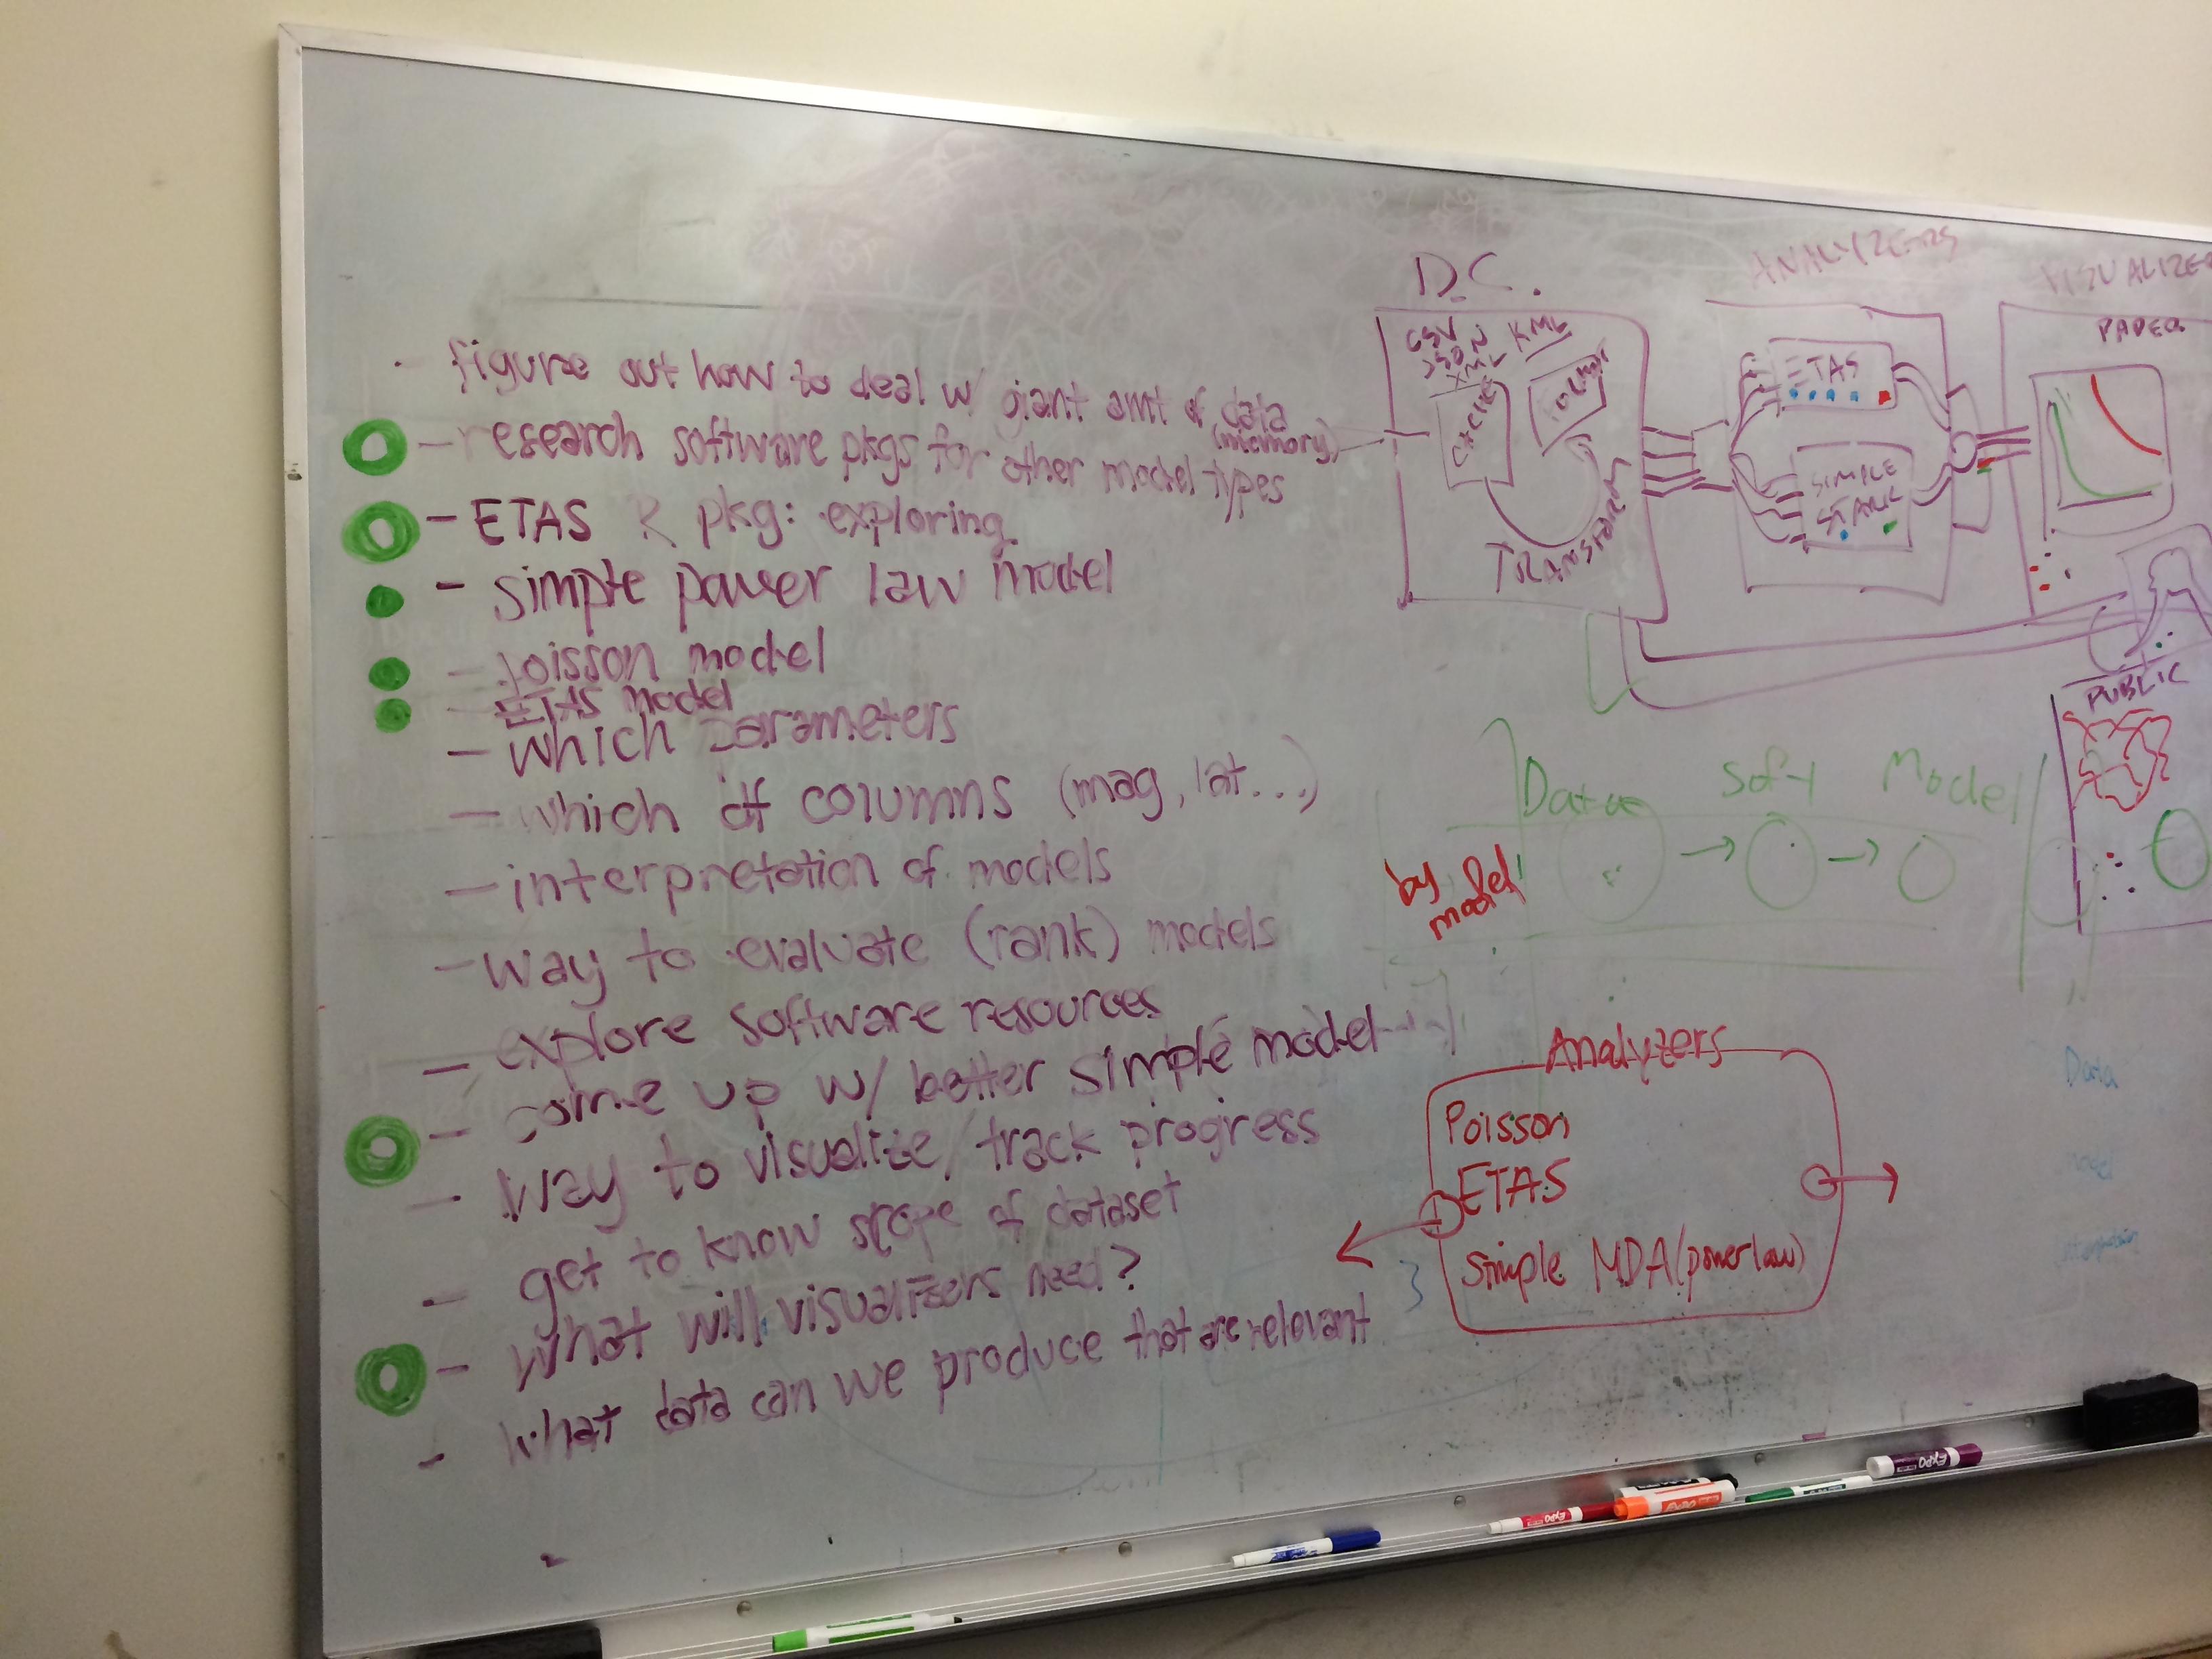 - figure out how to deal w/ giant amt of data
(memory)
- research software pkgs for other model types
- ETAS R pkg: exploring
- simple power law model
- Poisson model
- ETAS model
- which parameters
- which df columns (mag, lat...)
- interpretation of models
- way to evaluate (rank) models
- explore software resources
- come up w/ better simple model
- way to visualize/track progress
- get to know scope of dataset
- what will visualizers need?
- what data can we produce that are relevant
D.C.
CSV
JSON
XML
KML
TRANSFORM
ANALYZERS
ETAS
SIMPLE
STARK
VISUALIZE
PAPER
PUBLIC
Data
Soft
Model
by
model
Analyzers
Poisson
ETAS
Simple MDA (power law)
3
Data
model
EXPO
EXPO